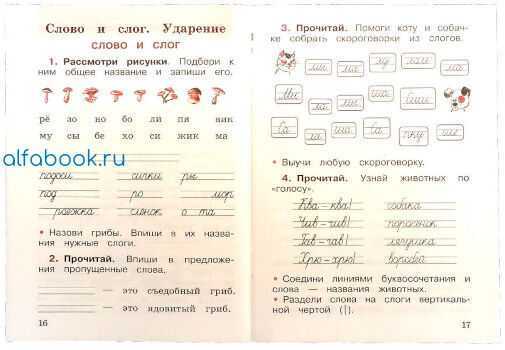 Слово и слог. Ударение
СЛОВО И СЛОГ
1. Рассмотри рисунки. Подбери к
ним общее название и запиши его.
рё зо но бо ли пя вик
му сы бе хо си жик ма
alfabook.ru
подоси сички ры
под ро мор
роежка слёнок о та
• Назови грибы. Впиши в их назва-
ния нужные слоги.
2. Прочитай. Впиши в предложе-
ния пропущенные слова.
— это съедобный гриб.
— это ядовитый гриб.
16
3. Прочитай. Помоги коту и собач-
ке собрать скороговорки из слогов.
Са ша Са
• Выучи любую скороговорку.
4. Прочитай. Узнай животных по
«голосу».
Ква - ква! собака
Чив - чив! поросёнок
Гав - гав! лягушка
Хрю - хрю! воробей
• Соедини линиями буквосочетания и
слова — названия животных.
• Раздели слова на слоги вертикаль-
ной чертой (|).
17